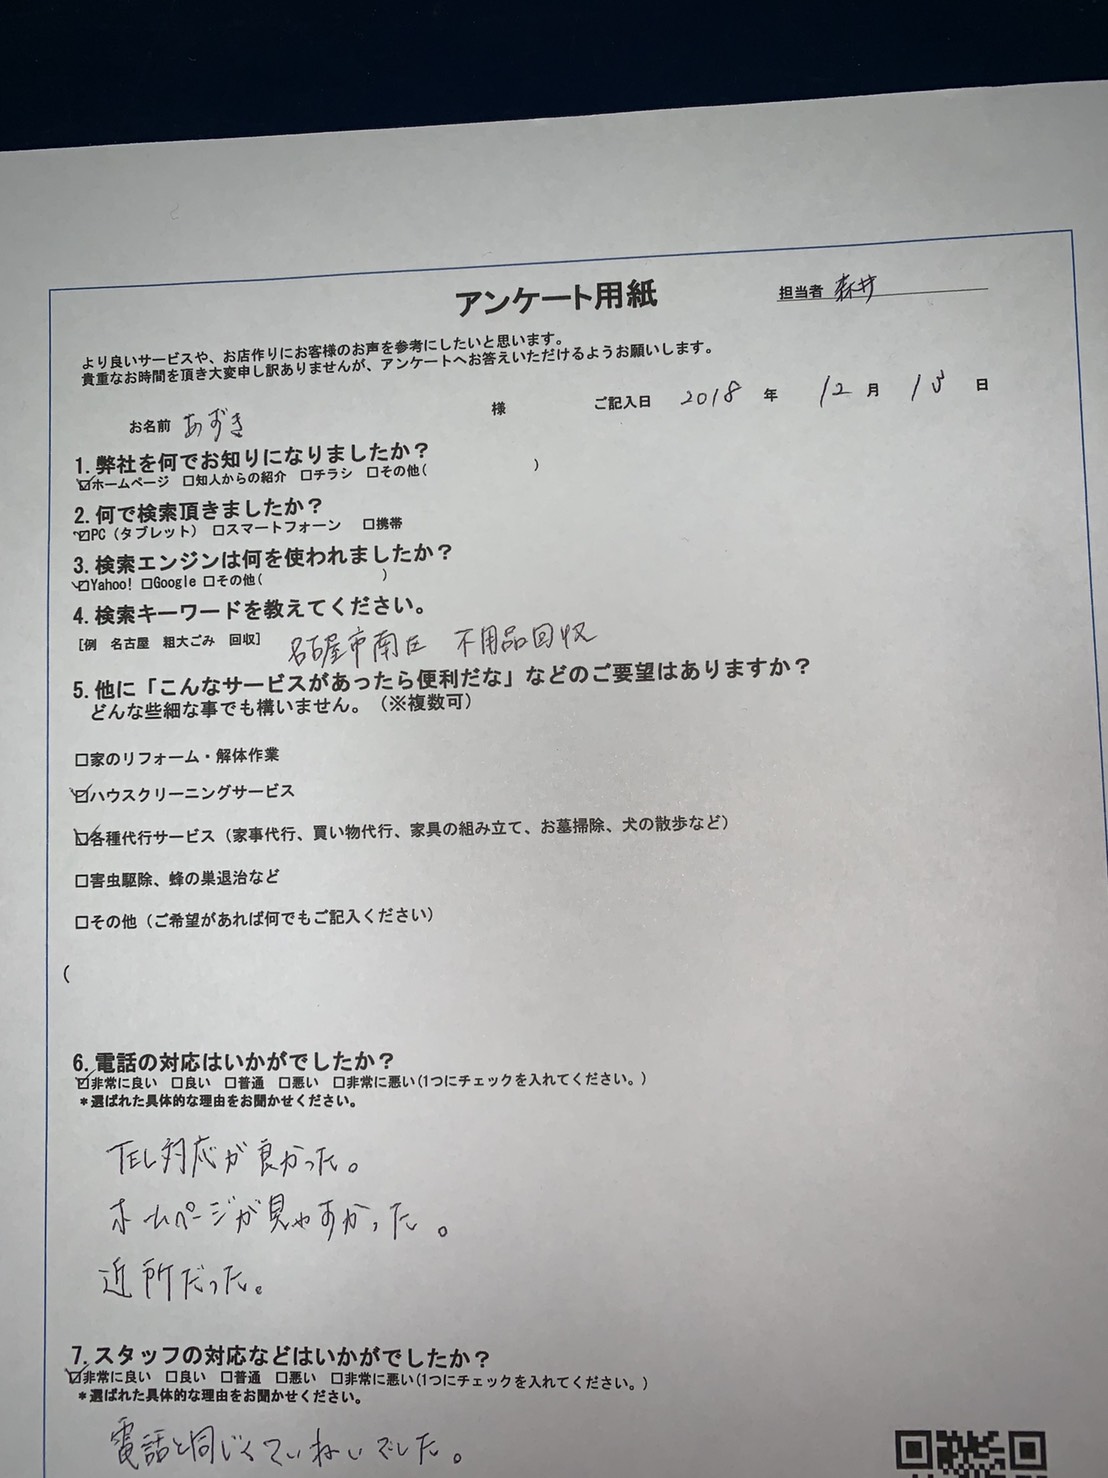 アンケート用紙
担当者 森井
より良いサービスや、お店作りにお客様のお声を参考にしたいと思います。
貴重なお時間を頂き大変申し訳ありませんが、アンケートへお答えいただけるようお願いします。
お名前 あずき 様 ご記入日 2018 年 12 月 13 日
1. 弊社を何でお知りになりましたか？
☑ホームページ □知人からの紹介 □チラシ □その他( )
2. 何で検索頂きましたか？
☑PC（タブレット） □スマートフォーン □携帯
3. 検索エンジンは何を使われましたか？
☑Yahoo! □Google □その他( )
4. 検索キーワードを教えてください。
[例 名古屋 粗大ごみ 回収] 名古屋市南区 不用品回収
5. 他に「こんなサービスがあったら便利だな」などのご要望はありますか？
どんな些細な事でも構いません。（※複数可）
□家のリフォーム・解体作業
☑ハウスクリーニングサービス
☑各種代行サービス（家事代行、買い物代行、家具の組み立て、お墓掃除、犬の散歩など）
□害虫駆除、蜂の巣退治など
□その他（ご希望があれば何でもご記入ください）
(
6. 電話の対応はいかがでしたか？
☑非常に良い □良い □普通 □悪い □非常に悪い(1つにチェックを入れてください。)
＊選ばれた具体的な理由をお聞かせください。
TEL対応が良かった。
ホームページが見やすかった。
近所だった。
7. スタッフの対応などはいかがでしたか？
☑非常に良い □良い □普通 □悪い □非常に悪い(1つにチェックを入れてください。)
＊選ばれた具体的な理由をお聞かせください。
電話と同じくていねいでした。